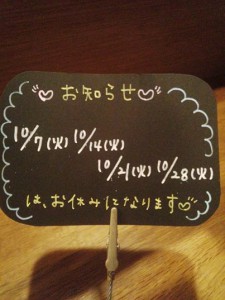 お知らせ
10/7(火) 10/14(火)
10/21(火) 10/28(火)
は、お休みになります